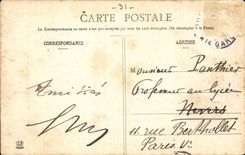 -31-
CARTE POSTALE
La Correspondance au recto n'est pas acceptée par tous les pays étrangers. (Se renseigner à la Poste)
CORRESPONDANCE
ADRESSE
GARE
Monsieur Panthier
Professeur au Lycée
Nevers
11 rue Berthollet
Paris Ve
Amitiés